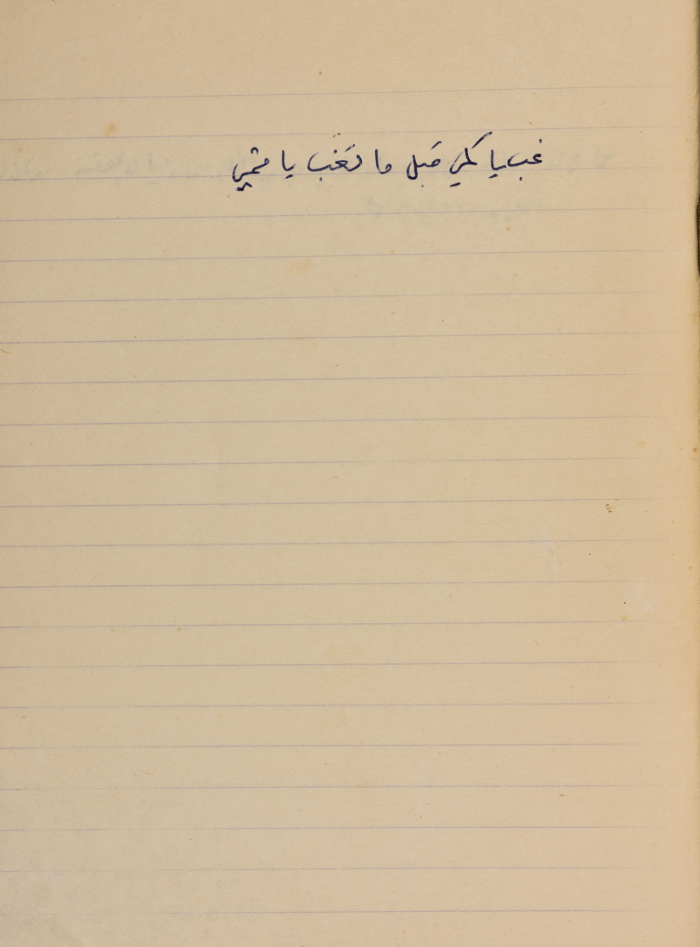 غب يا كمي قبل ما تغب يا فمي